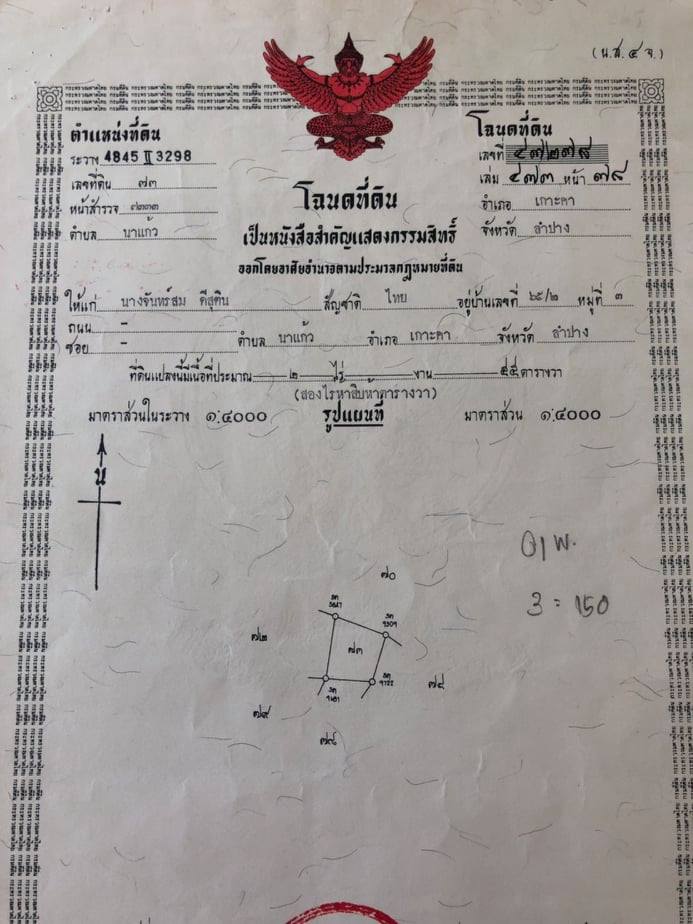 (น.ส.๔ จ.)
ตำแหน่งที่ดิน
ระวาง 4845 II 3298
เลขที่ดิน ๗๓
หน้าสำรวจ
ตำบล นาแก้ว
โฉนดที่ดิน
เลขที่ ๔๗๒๗๘
เล่ม ๔๗๓ หน้า ๗๘
อำเภอ เกาะคา
จังหวัด ลำปาง
โฉนดที่ดิน
เป็นหนังสือสำคัญแสดงกรรมสิทธิ์
ออกโดยอาศัยอำนาจตามประมวลกฎหมายที่ดิน
ให้แก่ นางจันทร์สม ดีสุติน สัญชาติ ไทย อยู่บ้านเลขที่ ๖๕/๒ หมู่ที่ ๓
ถนน -
ซอย - ตำบล นาแก้ว อำเภอ เกาะคา จังหวัด ลำปาง
ที่ดินแปลงนี้มีเนื้อที่ประมาณ ๒ ไร่ - งาน ๕๕ ตารางวา
(สองไร่ห้าสิบห้าตารางวา)
มาตราส่วนในระวาง ๑:๔๐๐๐ รูปแผนที่ มาตราส่วน ๑:๔๐๐๐
น
๗๐
๗๒
๗๓
๗๔
๗๙
๗๘
3 = 150